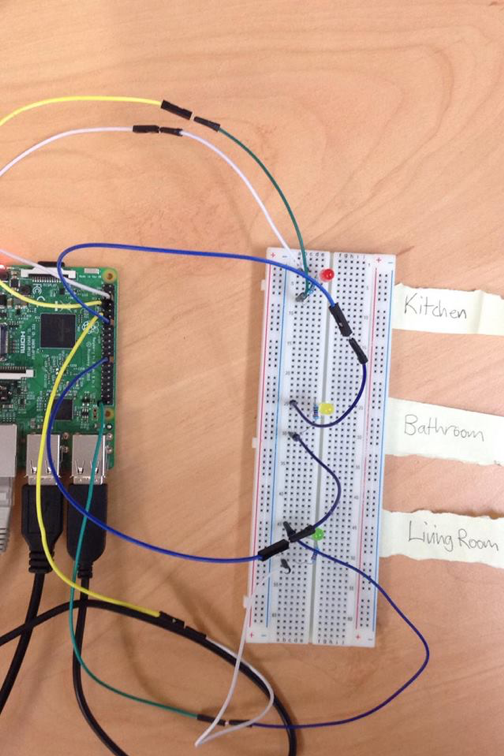 Kitchen
Bathroom
Living Room